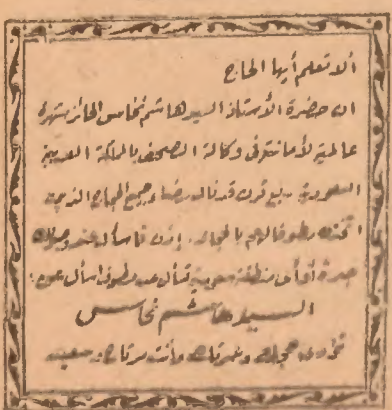 ألا تعلم أيها الحاج
ان حضرة الأستاذ السيد هاشم نحاس الحائز شهرة
عالمية لأمانته في وكالة الصحف بالمملكة العربية
السعودية ربع قرن قد نال رضاء جميع الحجاج الذين
اتخذوه مطوفا لهم بالحجاز. إذن فاسأل عند وصولك
جدة أو أى منطقة سعودية تسأل عن مطوفك اسأل عن:
السيد هاشم نحاس
تؤدى حجك وعمرتك وأنت مرتاح وسعيد